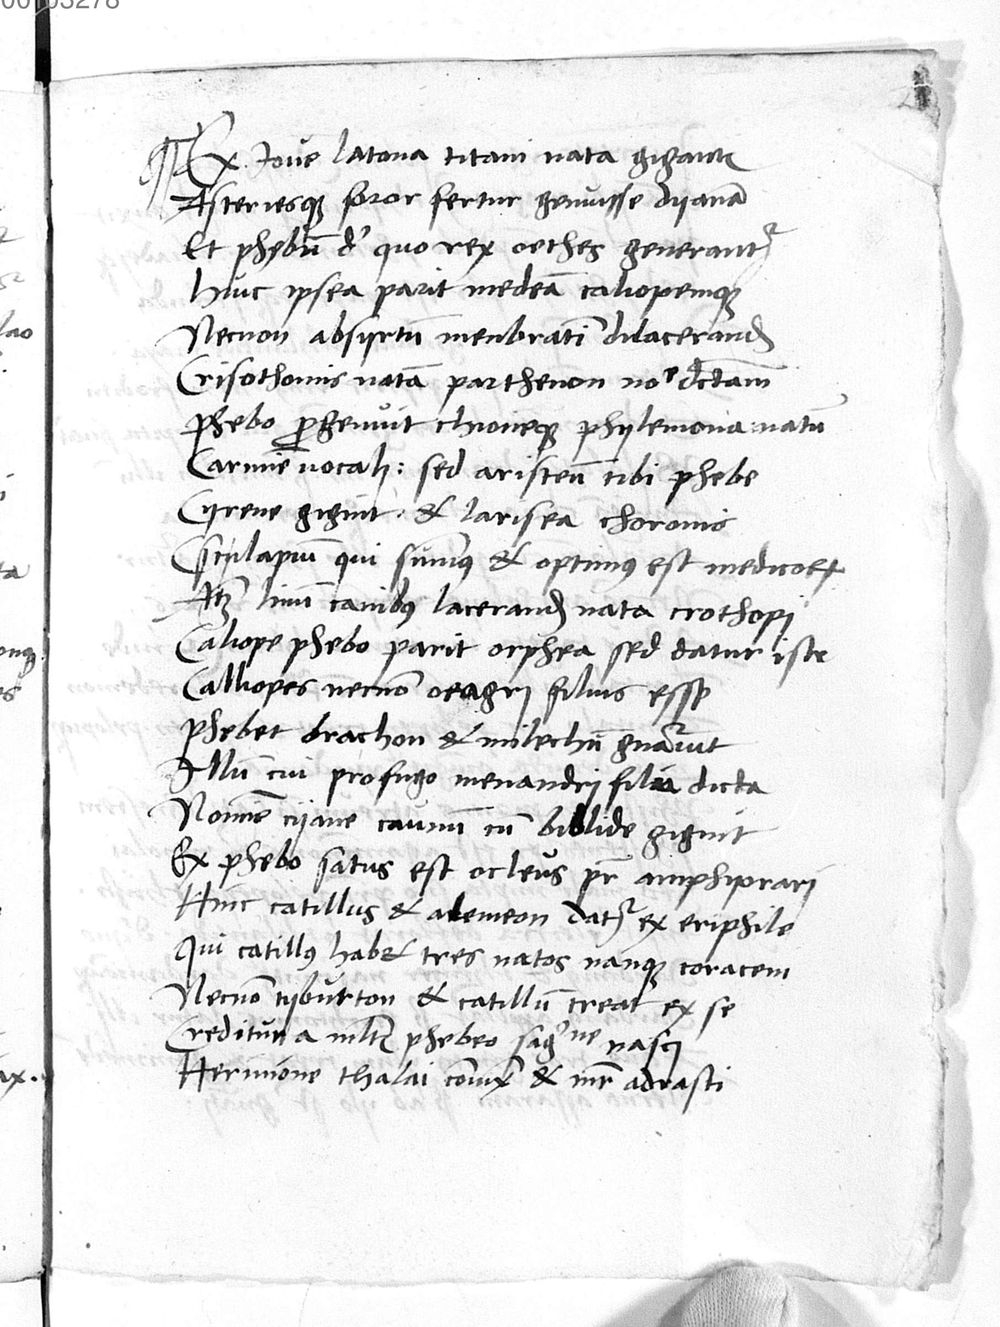 00103278
Ex Joue latona titani nata gigantis
Asteriesq; soror fertur genuisse dijanā
Et phebū d' quo rex oethes generantr
huic ipsea parit medeā caliopemq;
Necnon absyrtū menbratī dilacerand
Crisothomis natā parthenon noe dctam
phebo progenuit chioneq; phylemona natū
Carmīe vocali: sed aristeū tibi phebe
Cyrene gignit. & larisea choronis
Esculapiū qui sūmus & optimus est medicorum
Atq; linū canibus lacerand nata crothopi
Caliope phebo parit orphea sed datur iste
Calliopes necnō oeagri filius esse
phebet drachon & milechū gnāuit
Illū cui profugo menandri filia dicta
Nomīe cijane caunū cū biblide gignit
Ex phebo satus est ocleus pr amphiprari
Hinc catillus & alcmeon datr ex eriphile
Qui catillus habet tres natos nanq; coracem
Necnō tyburton & catillū creat ex se
Creditur a mltis phebeo sagīne nasci
Hermione thalai cōiux & mr adrasti